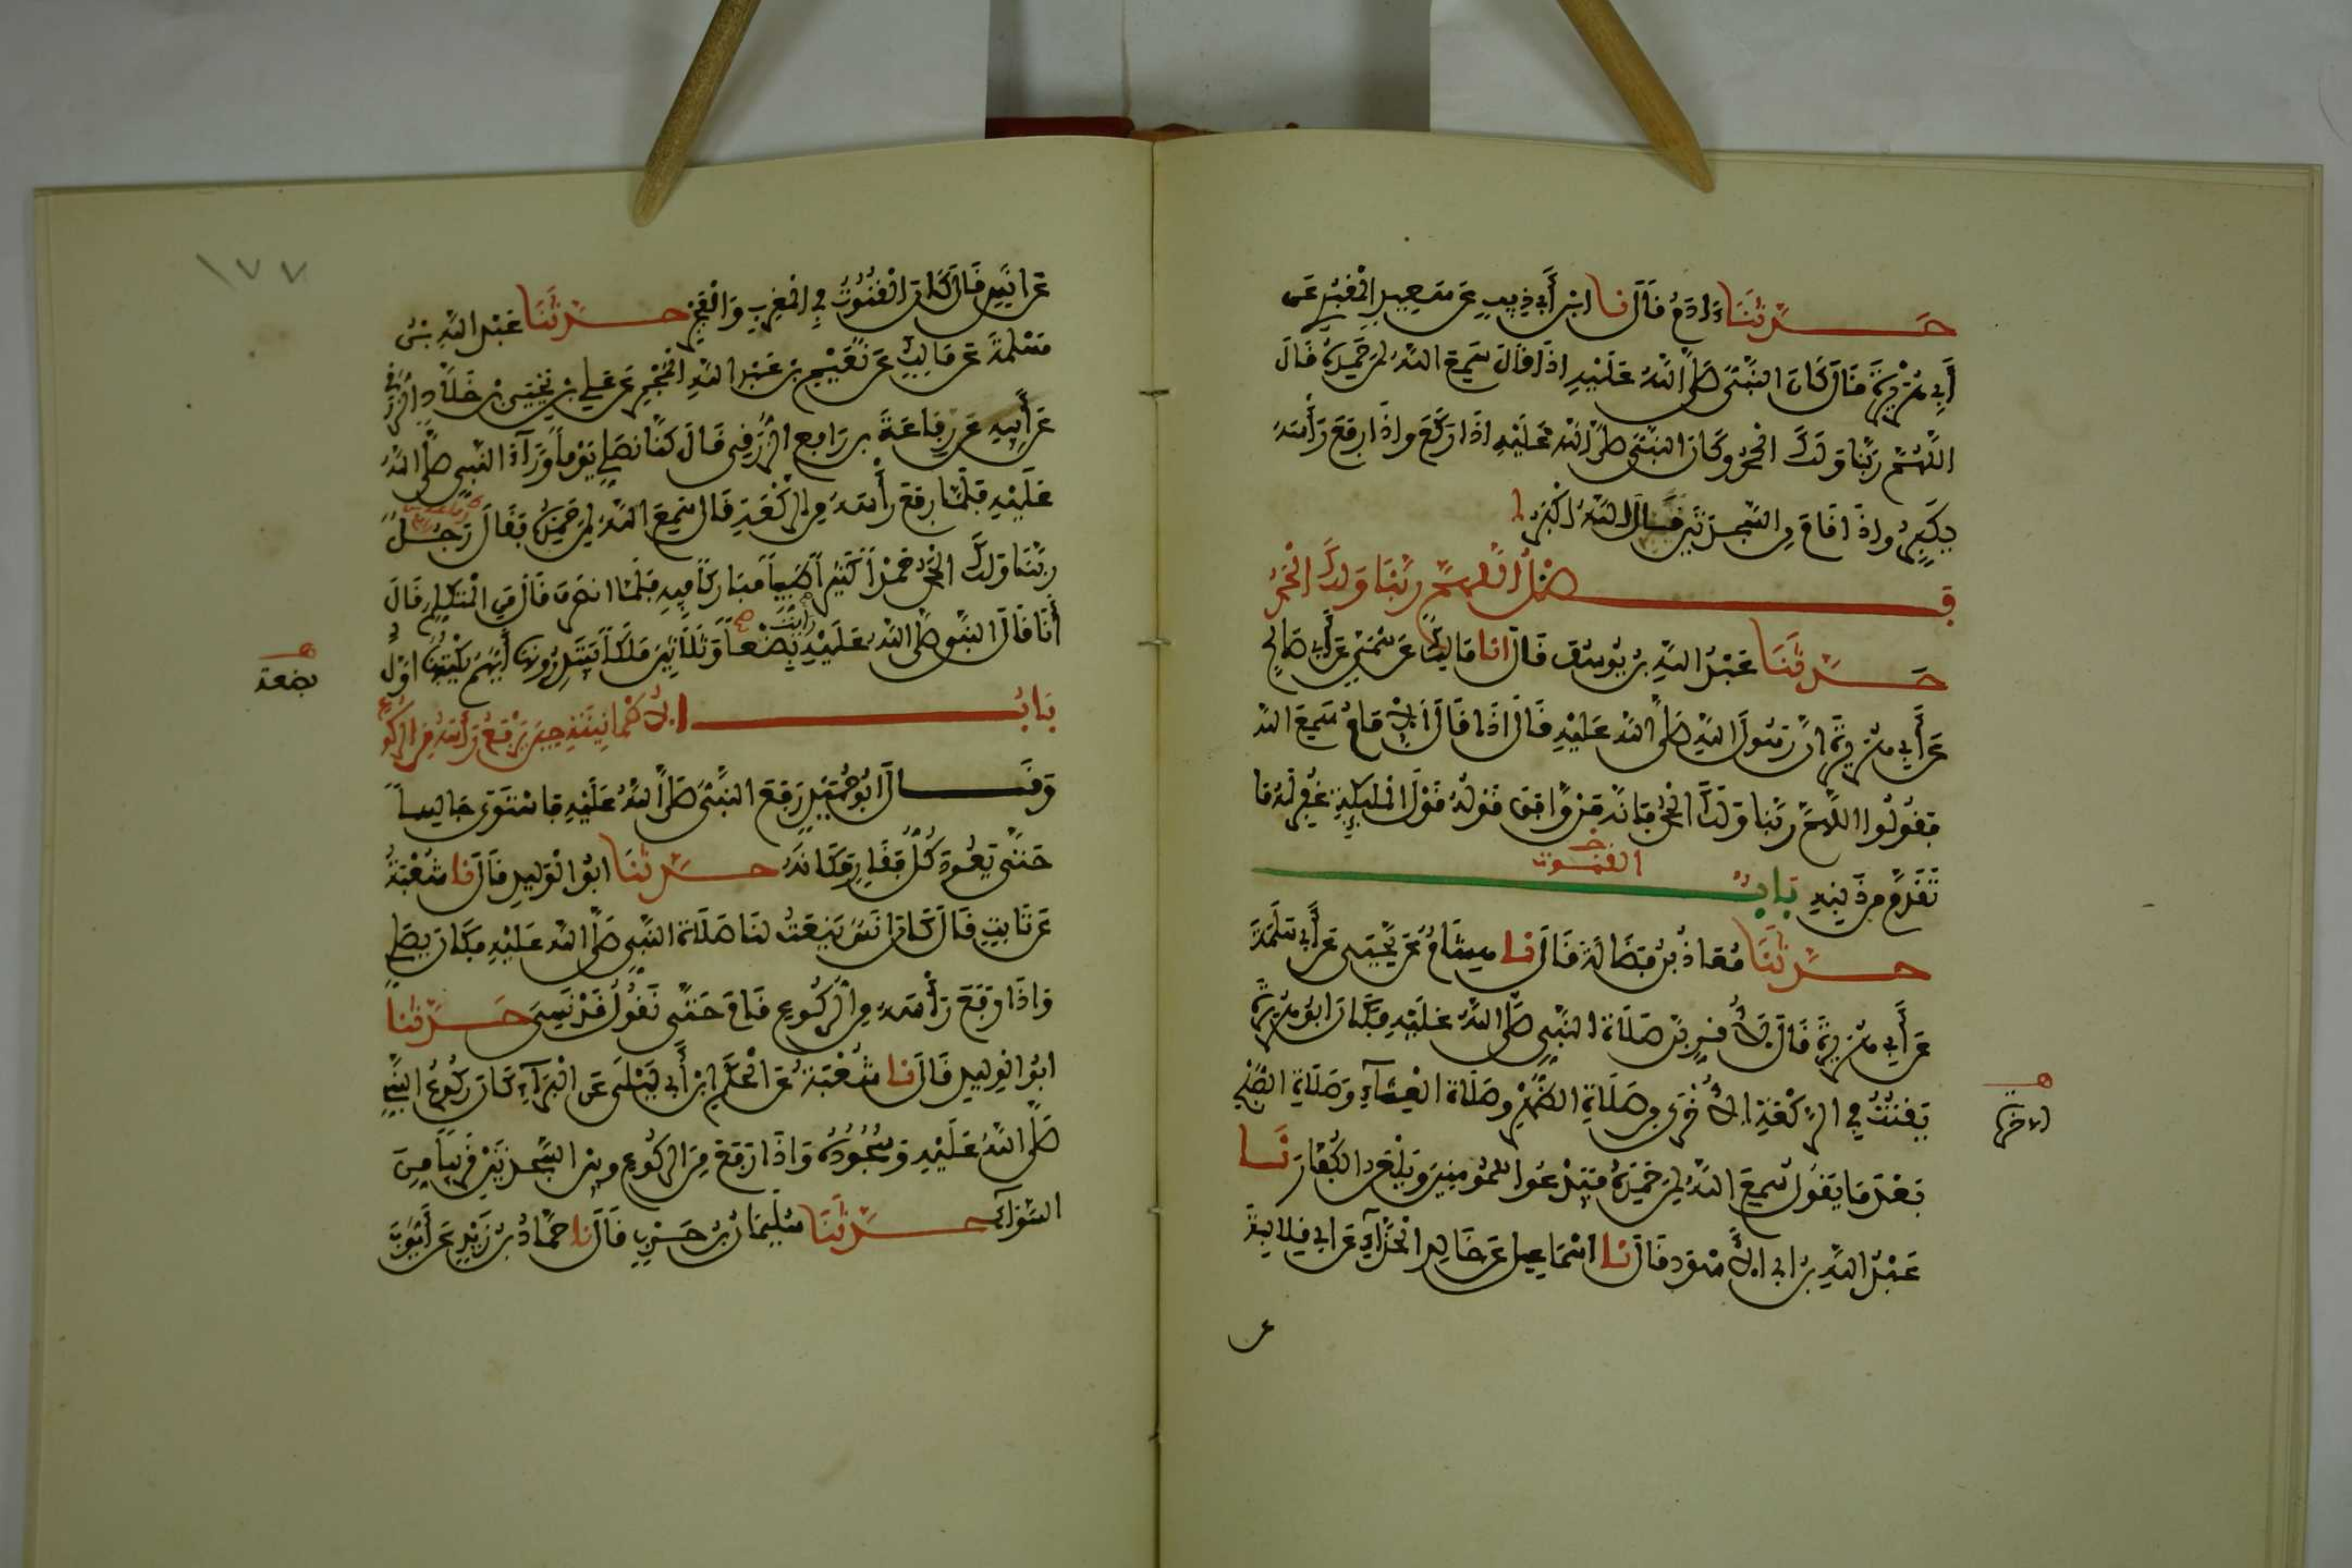 حَدَّثَنَا ءَادَمُ قَالَ نا ابْنُ أَبِي ذِيبٍ عَن سَعِيدٍ الْمَقْبُرِي عَن
أَبِي هُرَيْرَةَ قَالَ كَانَ النَّبِيُّ صَلَّى اللَّهُ عَلَيْهِ اذَا قَالَ سَمِعَ اللَّهُ لِمَن حَمِدَهُ قَالَ
اللَّهُمَّ رَبَّنَا وَلَكَ الْحَمْدُ وكَانَ النَّبِيُّ صَلَّى اللَّهُ عَلَيْهِ اذَا رَكَعَ واذَا رَفَعَ رَأْسَهُ
يُكَبِّرُ واذَا قَامَ مِنَ السَّجْدَتَيْنِ قَالَ اللَّهُ اكْبَرُ
فَضْلُ اللَّهُمَّ رَبَّنَا وَلَكَ الْحَمْدُ
حَدَّثَنَا عَبْدُ اللَّهِ بنُ يُوسُفَ قَالَ انا مَالِكٌ عَن سُمَيٍّ عَن أَبِي صَالِحٍ
عَن أَبِي هُرَيْرَةَ انَّ رَسُولَ اللَّهِ صَلَّى اللَّهُ عَلَيْهِ قَالَ اذَا قَالَ الامَامُ سَمِعَ اللَّهُ
فَقُولُوا اللَّهُمَّ رَبَّنَا وَلَكَ الْحَمْدُ فَإنَّهُ مَنْ وَافَقَ قَوْلُهُ قَوْلَ الْمَلَيِكَةِ غُفِرَ لَهُ مَا
تَقَدَّمَ مِن ذَنبِهِ بَابُ القنوت
حَدَّثَنَا مُعَاذُ بنُ فَضَالَةَ قَالَ نا هِشَامٌ عَن يَحْيَى عَن أَبِي سَلَمَةَ
عَن أَبِي هُرَيْرَةَ قَالَ لأُقَرِّبَنَّ صَلَاةَ النَّبِيِّ صَلَّى اللَّهُ عَلَيْهِ فَكَانَ ابُو هُرَيْرَةَ
يَقْنُتُ فِي الرَّكْعَةِ الأُخْرَى مِن صَلَاةِ الظُّهْرِ وصَلَاةِ الْعِشَآءِ وَصَلَاةِ الصُّبْحِ
الاخرة
بَعْدَ مَا يَقُولُ سَمِعَ اللَّهُ لِمَنْ حَمِدَهُ فَيَدْعُو لِلْمُومِنِينَ وَيَلْعَنُ الْكُفَّارَ نَا
عَبْدُ اللَّهِ بنُ ابِي الاسْوَدِ قَالَ نا اسْمَاعِيلُ عَن خَالِدٍ الْحَذَّآءِ عَن ابِي قِلَابَةَ
عن
١٧٧
عَن انَسٍ قَالَ كَانَ الْقُنُوتُ فِي الْمَغْرِبِ وَالْفَجْرِ حَدَّثَنَا عَبْدُ اللَّهِ بْنُ
مَسْلَمَةَ عَن مَالِكٍ عَن نُعَيْمِ بنِ عَبْدِ اللَّهِ الْمُجْمِرِ عَن عَلِي بْنِ يَحْيَى بْنِ خَلَّادٍ الزُّرَقِي
عَن أَبِيهِ عَن رِفَاعَةَ بنِ رَافِعٍ الزُّرَقِي قَالَ كُنَّا نُصَلِّي يَوْماً وَرَآءَ النَّبِي صَلَّى اللَّهُ
عَلَيْهِ فَلَمَّا رَفَعَ رَأْسَهُ مِنَ الرَّكْعَةِ قَالَ سَمِعَ اللَّهُ لِمَن حَمِدَهُ فَقَالَ رَجُلٌ
رَبَّنَا وَلَكَ الْحَمْدُ حَمْداً كَثِيراً طَيِّباً مُبَارَكاً فِيهِ فَلَمَّا انصَرَفَ قَالَ مَنِ الْمُتَكَلِّمُ قَالَ
أَنَا قَالَ النَّبِي صَلَّى اللَّهُ عَلَيْهِ رايت بِضْعاً وَثَلَاثِينَ مَلَكاً يَبْتَدِرُونَهَا أَيُّهُمْ يَكْتُبُهَا اوَّلُ
بضعة
بَابُ الاطْمَانِينَةِ حِينَ يَرْفَعُ رَأْسَهُ مِنَ الرُّكُوعِ
وَقَالَ ابُو حُمَيْدٍ رَفَعَ النَّبِيُّ صَلَّى اللَّهُ عَلَيْهِ فَاسْتَوَى جَالِساً
حَتَّى يَعُودَ كُلُّ فَقَارٍ مَكَانَهُ حَدَّثَنَا ابُو الْوَلِيدِ قَالَ نا شُعْبَةُ
عَن ثَابِتٍ قَالَ كَانَ انَسٌ يَنْعَتُ لَنَا صَلَاةَ النَّبِيِّ صَلَّى اللَّهُ عَلَيْهِ فَكَانَ يُصَلِّي
وَاذَا رَفَعَ رَأْسَهُ مِنَ الرُّكُوعِ قَامَ حَتَّى نَقُولَ قَدْ نَسِيَ حَدَّثَنَا
ابُو الْوَلِيدِ قَالَ نا شُعْبَةُ عَنِ الْحَكَمِ عَنِ ابْنِ أَبِي لَيْلَى عَنِ الْبَرَآءِ كَانَ رُكُوعُ النَّبِيِّ
صَلَّى اللَّهُ عَلَيْهِ وَسُجُودُهُ وَاذَا رَفَعَ مِنَ الرُّكُوعِ وبَيْنَ السَّجْدَتَيْنِ قَرِيباً مِنَ
السَّوَآءِ حَدَّثَنَا سُلَيْمَانُ بنُ حَرْبٍ قَالَ نا حَمَّادُ بنُ زَيْدٍ عَن أَيُّوبَ